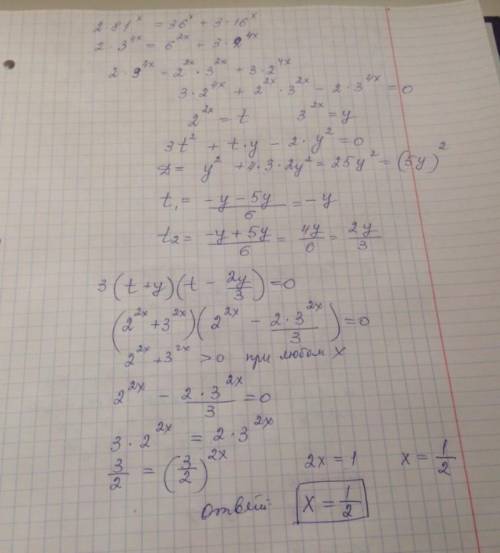 2·81ˣ = 36ˣ + 3·16ˣ
2·3⁴ˣ = 6²ˣ + 3·2⁴ˣ
2·9⁴ˣ - 2²ˣ·3²ˣ + 3·2⁴ˣ
3·2⁴ˣ + 2²ˣ·3²ˣ - 2·3⁴ˣ = 0
2²ˣ = t 3²ˣ = y
3t² + t·y - 2·y² = 0
D = y² + 4·3·2y² = 25y² = (5y)²
t₁ = (-y - 5y)/6 = -y
t₂ = (-y + 5y)/6 = 4y/6 = 2y/3
3(t+y)(t - 2y/3) = 0
(2²ˣ + 3²ˣ)(2²ˣ - 2·3²ˣ/3) = 0
2²ˣ + 3²ˣ > 0 при любом x
2²ˣ - 2·3²ˣ/3 = 0
3·2²ˣ = 2·3²ˣ
3/2 = (3/2)²ˣ 2x = 1 x = 1/2
ответ x = 1/2